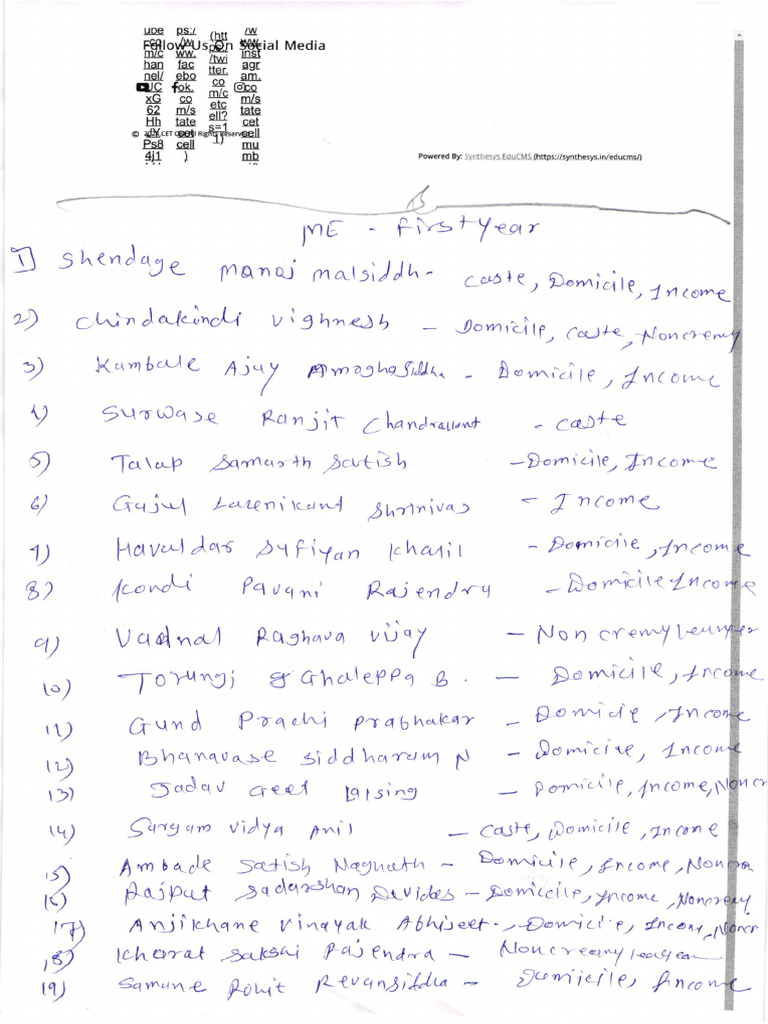 Follow Us On Social Media
© CET Cell All Rights Reserved
Powered By: Synthesys EduCMS (https://synthesys.in/educms/)
ME - First Year
1) Shendage Manoj Malsiddh - Caste, Domicile, Income
2) Chindakindi Vighnesh - Domicile, Caste, Noncremy
3) Kambale Ajay Amoghasiddha - Domicile, Income
4) Surwase Ranjit Chandrakant - Caste
5) Talap Samarth Satish - Domicile, Income
6) Gajul Shrinivas - Income
7) Havaldar Sufiyan Khalil - Domicile, Income
8) Kondi Pavani Rajendra - Domicile Income
9) Vadnal Raghava Vijay - Non cremy
10) Torungi Ghaleppa B. - Domicile, Income
11) Gund Prachi Prabhakar - Domicile, Income
12) Bhanavase Siddharam N - Domicile, Income
13) Jadav Geet Lalsing - Domicile, Income, Noncr
14) Sargam Vidya Anil - Caste, Domicile, Income
15) Ambade Satish Nagnath - Domicile, Income, Noncr
16) Rajput Sadarshan Devidas - Domicile, Income, Noncremy
17) Anjikhane Vinayak Abhijeet - Domicile, Income, Noncr
18) Kharat Sakshi Rajendra - Noncreamy
19) Samane Rohit Revansiddha - Domicile, Income